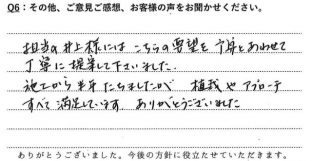 Q6:その他、ご意見ご感想、お客様の声をお聞かせください。
担当の井上様には こちらの要望を 予算とあわせて
丁寧に 提案して下さいました.
施工から半年 たちましたが 植栽や アプローチ
すべて 満足しています ありがとうございました
ありがとうございました。今後の方針に役立たせていただきます。